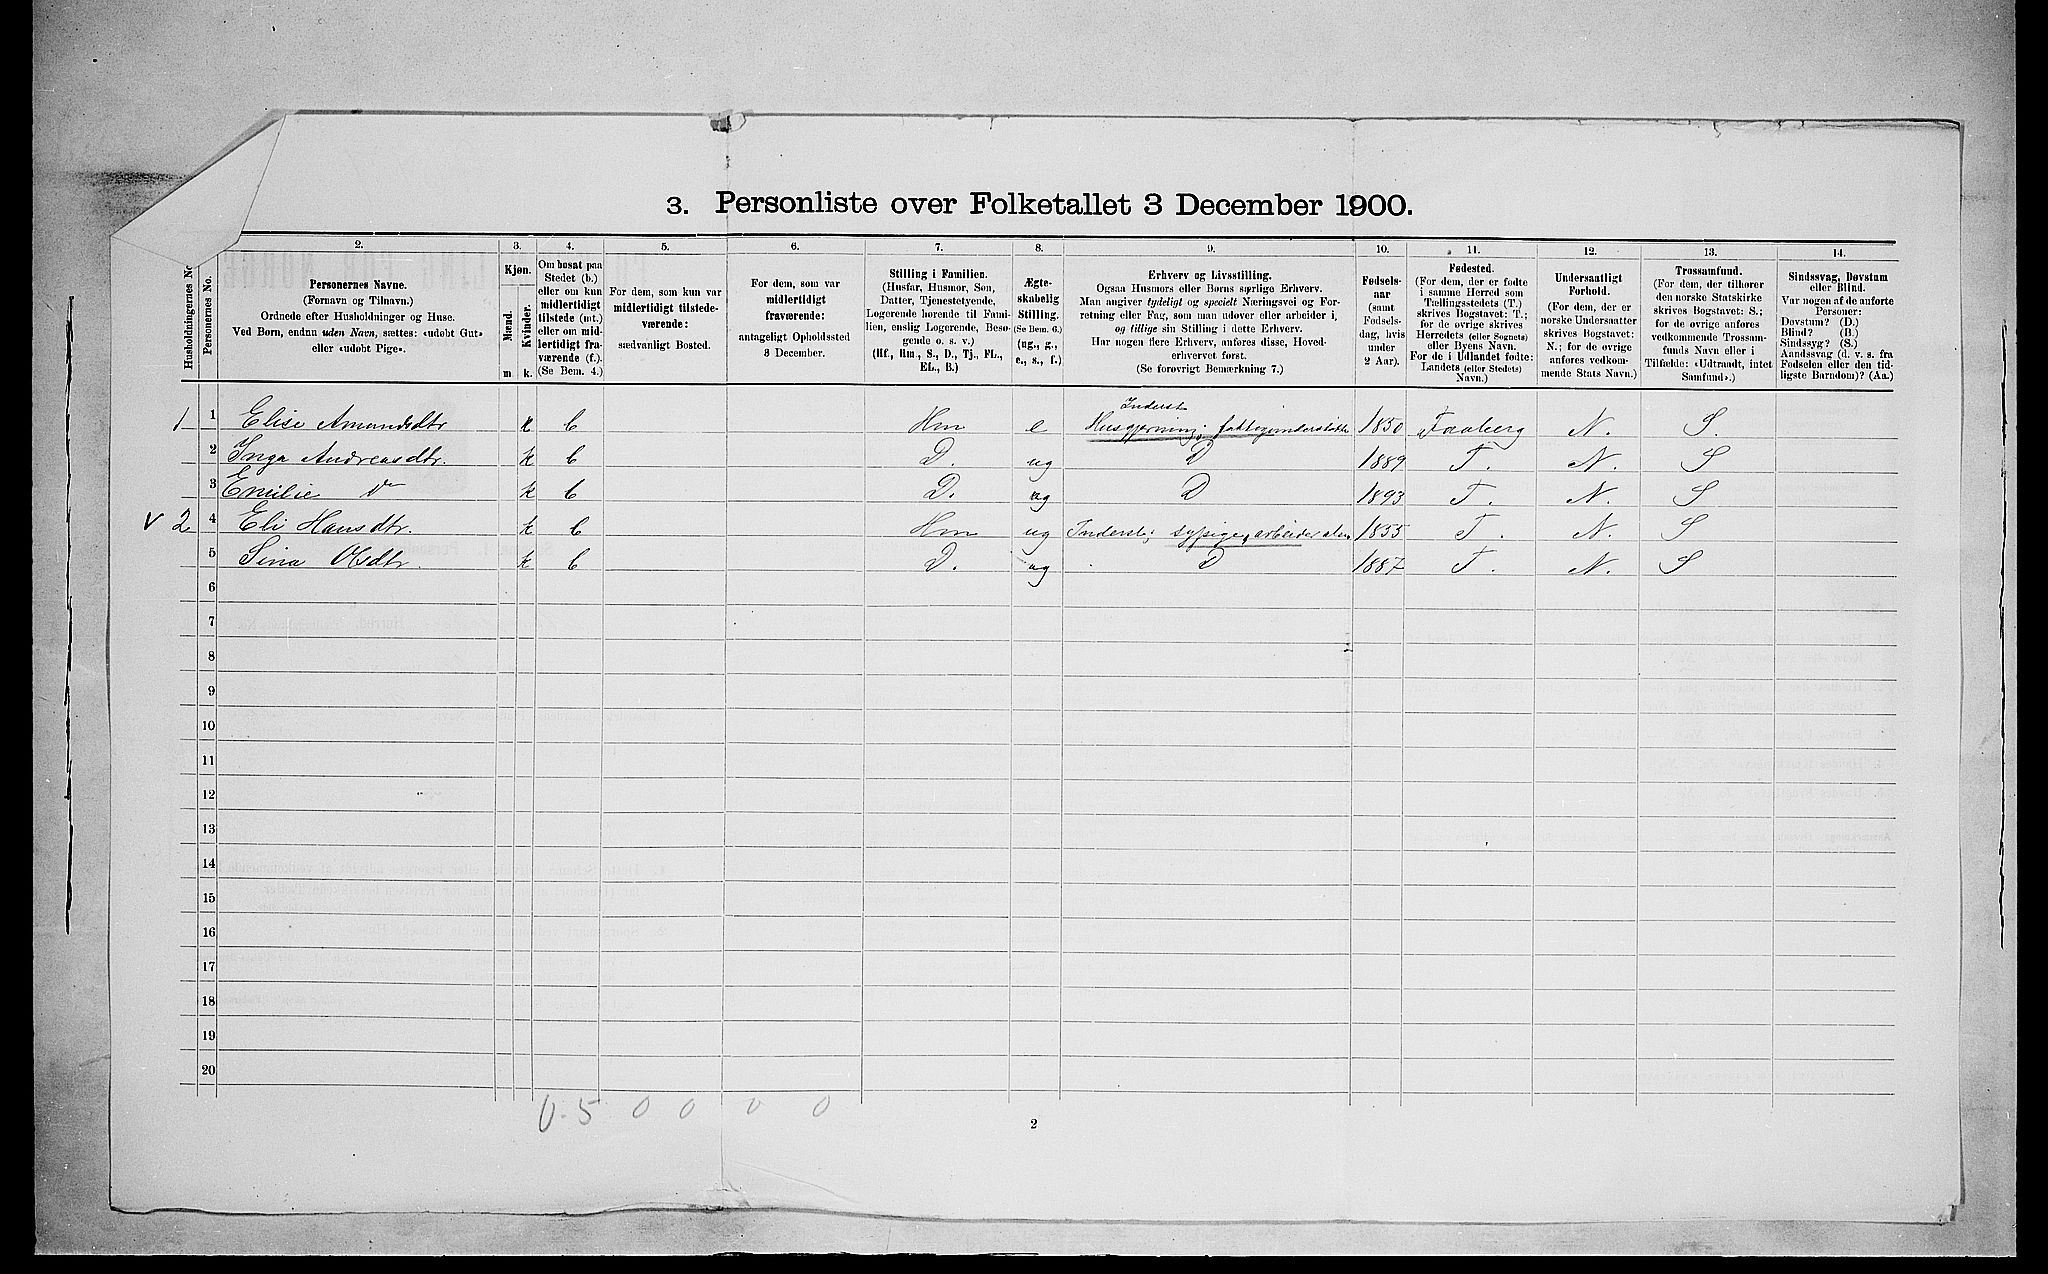 3. Personliste over Folketallet 3 December 1900.
2. 3. 4. 5. 6. 7. 8. 9. 10. 11. 12. 13. 14.
Husholdningernes No.
Personernes No.
Personernes Navne.
(Fornavn og Tilnavn.)
Ordnede efter Husholdninger og Huse.
Ved Børn, endnu uden Navn, sættes: «udøbt Gut»
eller «udøbt Pige».
Kjøn.
Mænd.
Kvinder.
m. k.
Om bosat paa
Stedet (b.)
eller om kun
midlertidigt
tilstede (mt.)
eller om mid-
lertidigt fra-
værende (f.)
(Se Bem. 4.)
For dem, som kun var
midlertidigt tilstede-
værende:
sædvanligt Bosted.
For dem, som var
midlertidigt
fraværende:
antageligt Opholdssted
3 December.
Stilling i Familien.
(Husfar, Husmor, Søn,
Datter, Tjenestetyende,
Logerende hørende til Fami-
lien, enslig Logerende, Besø-
gende o. s. v.)
(Hf., Hm., S., D., Tj., FL.,
EL., B.)
Ægte-
skabelig
Stilling.
(Se Bem. 6.)
(ug., g.,
e., s., f.)
Erhverv og Livsstilling.
Ogsaa Husmors eller Børns særlige Erhverv.
Man angiver tydeligt og specielt Næringsvei og For-
retning eller Fag, som man udøver eller arbeider i,
og tillige sin Stilling i dette Erhverv.
Har nogen flere Erhverv, anføres disse, Hoved-
erhvervet først.
(Se forøvrigt Bemærkning 7.)
Fødsels-
aar
(samt
Fødsels-
dag, hvis
under
2 Aar).
Fødested.
(For dem, der er fødte
i samme Herred som
Tællingsstedets (T.)
skrives Bogstavet: T.;
for de øvrige skrives
Herredets (eller Sognets)
eller Byens Navn.
For de i Udlandet fødte:
Landets (eller Stedets)
Navn.)
Undersaatligt
Forhold.
(For dem, der er
norske Undersaatter
skrives Bogstavet:
N.; for de øvrige
anføres vedkom-
mende Stats Navn.)
Trossamfund.
(For dem, der tilhører
den norske Statskirke
skrives Bogstavet: S.;
for de øvrige anføres
vedkommende Trossam-
funds Navn eller i
Tilfælde: «Udtraadt, intet
Samfund».)
Sindssvag, Døvstum
eller Blind.
Var nogen af de anførte
Personer:
Døvstum? (D.)
Blind? (B.)
Sindssyg? (S.)
Aandssvag (d. v. s. fra
Fødselen eller den tid-
ligste Barndom)? (Aa.)
Inderst
1 1 Elise Amundsdtr k b Hm e Husgjerning; fattigunderstøtt. 1850 Faaberg N. S.
2 Inga Andreasdtr. k b D. ug D 1889 T. N. S
3 Emilie Do k b D. ug D 1893 T. N. S
v 2 4 Eli Hansdtr. k b Hm ug Inderst; sypige, arbeider alene 1855 T. N. S
5 Sina Olsdtr. k b D. ug D 1887 T. N. S
6
7
8
9
10
11
12
13
14
15
16
17
18
19
20
0-5 0 0 0 0
2